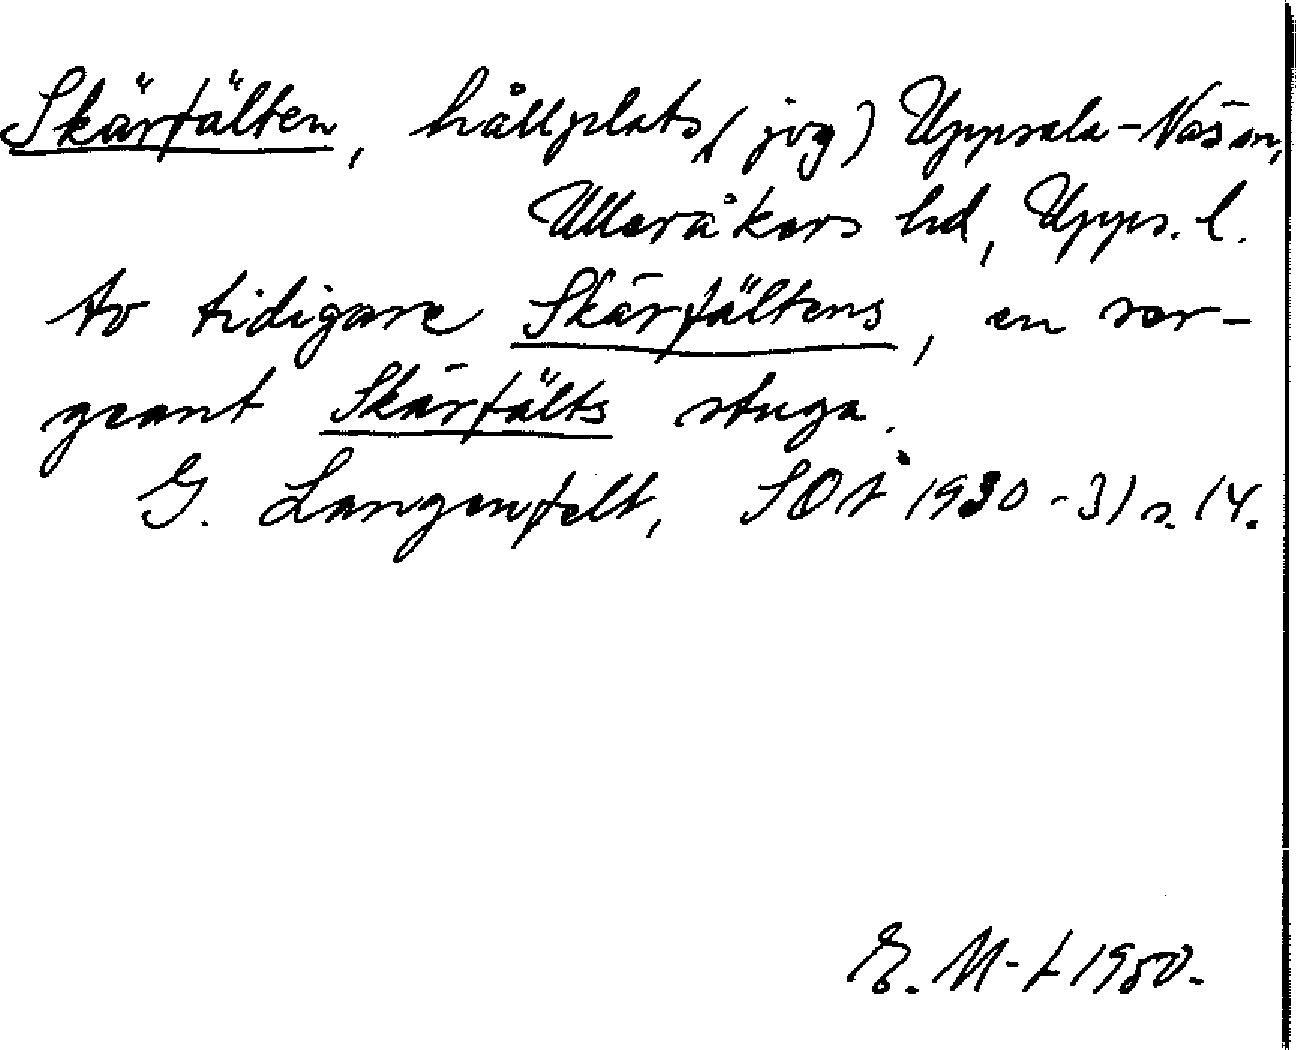 Skärfälten, hållplats, (jvg) Uppsala-Näsan,
Ulleråkers hd, Upps. l.
Av tidigare Skärfältens, en ser-
geant Skärfälts stuga.
G. Langenfelt, SOÅ 1930-31 s. 14.
E. M-t 1950.